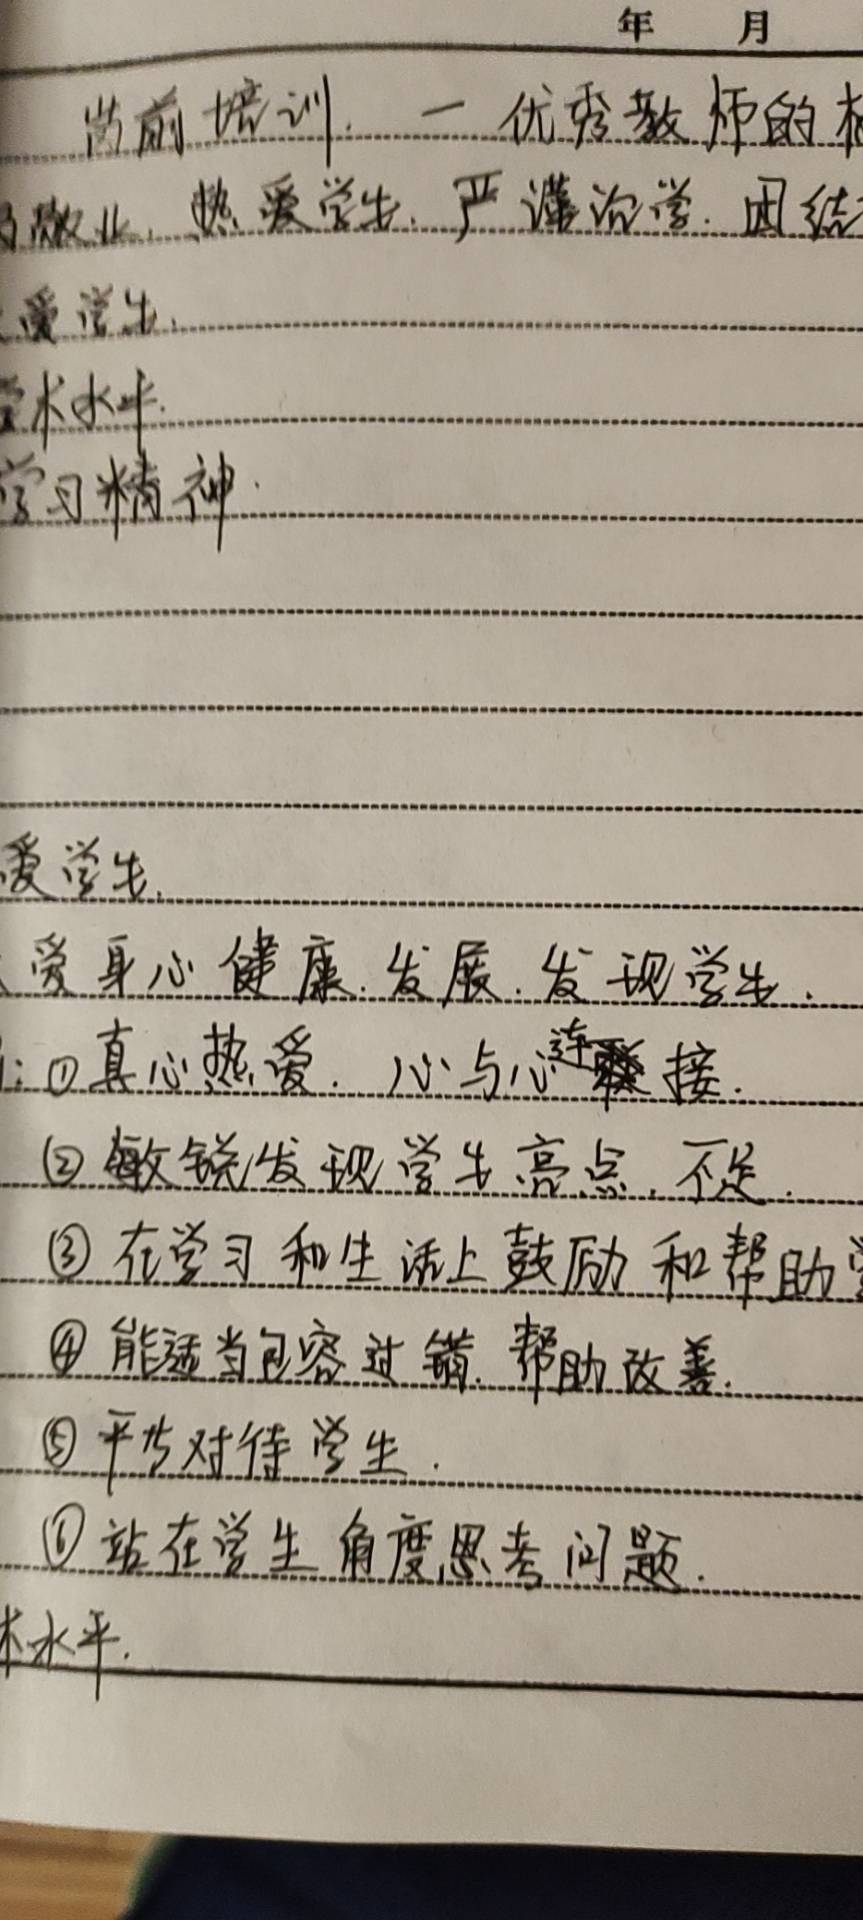 年 月
岗前培训. 一 优秀教师的
敬业. 热爱学生. 严谨治学. 团结
爱学生.
学术水平.
学习精神.
爱学生.
爱身心健康. 发展. 发现学生.
: ①真心热爱. 心与心连接.
②敏锐发现学生亮点. 不足.
③在学习和生活上鼓励和帮助学
④能适当包容过错. 帮助改善.
⑤平等对待学生.
⑥站在学生角度思考问题.
术水平.